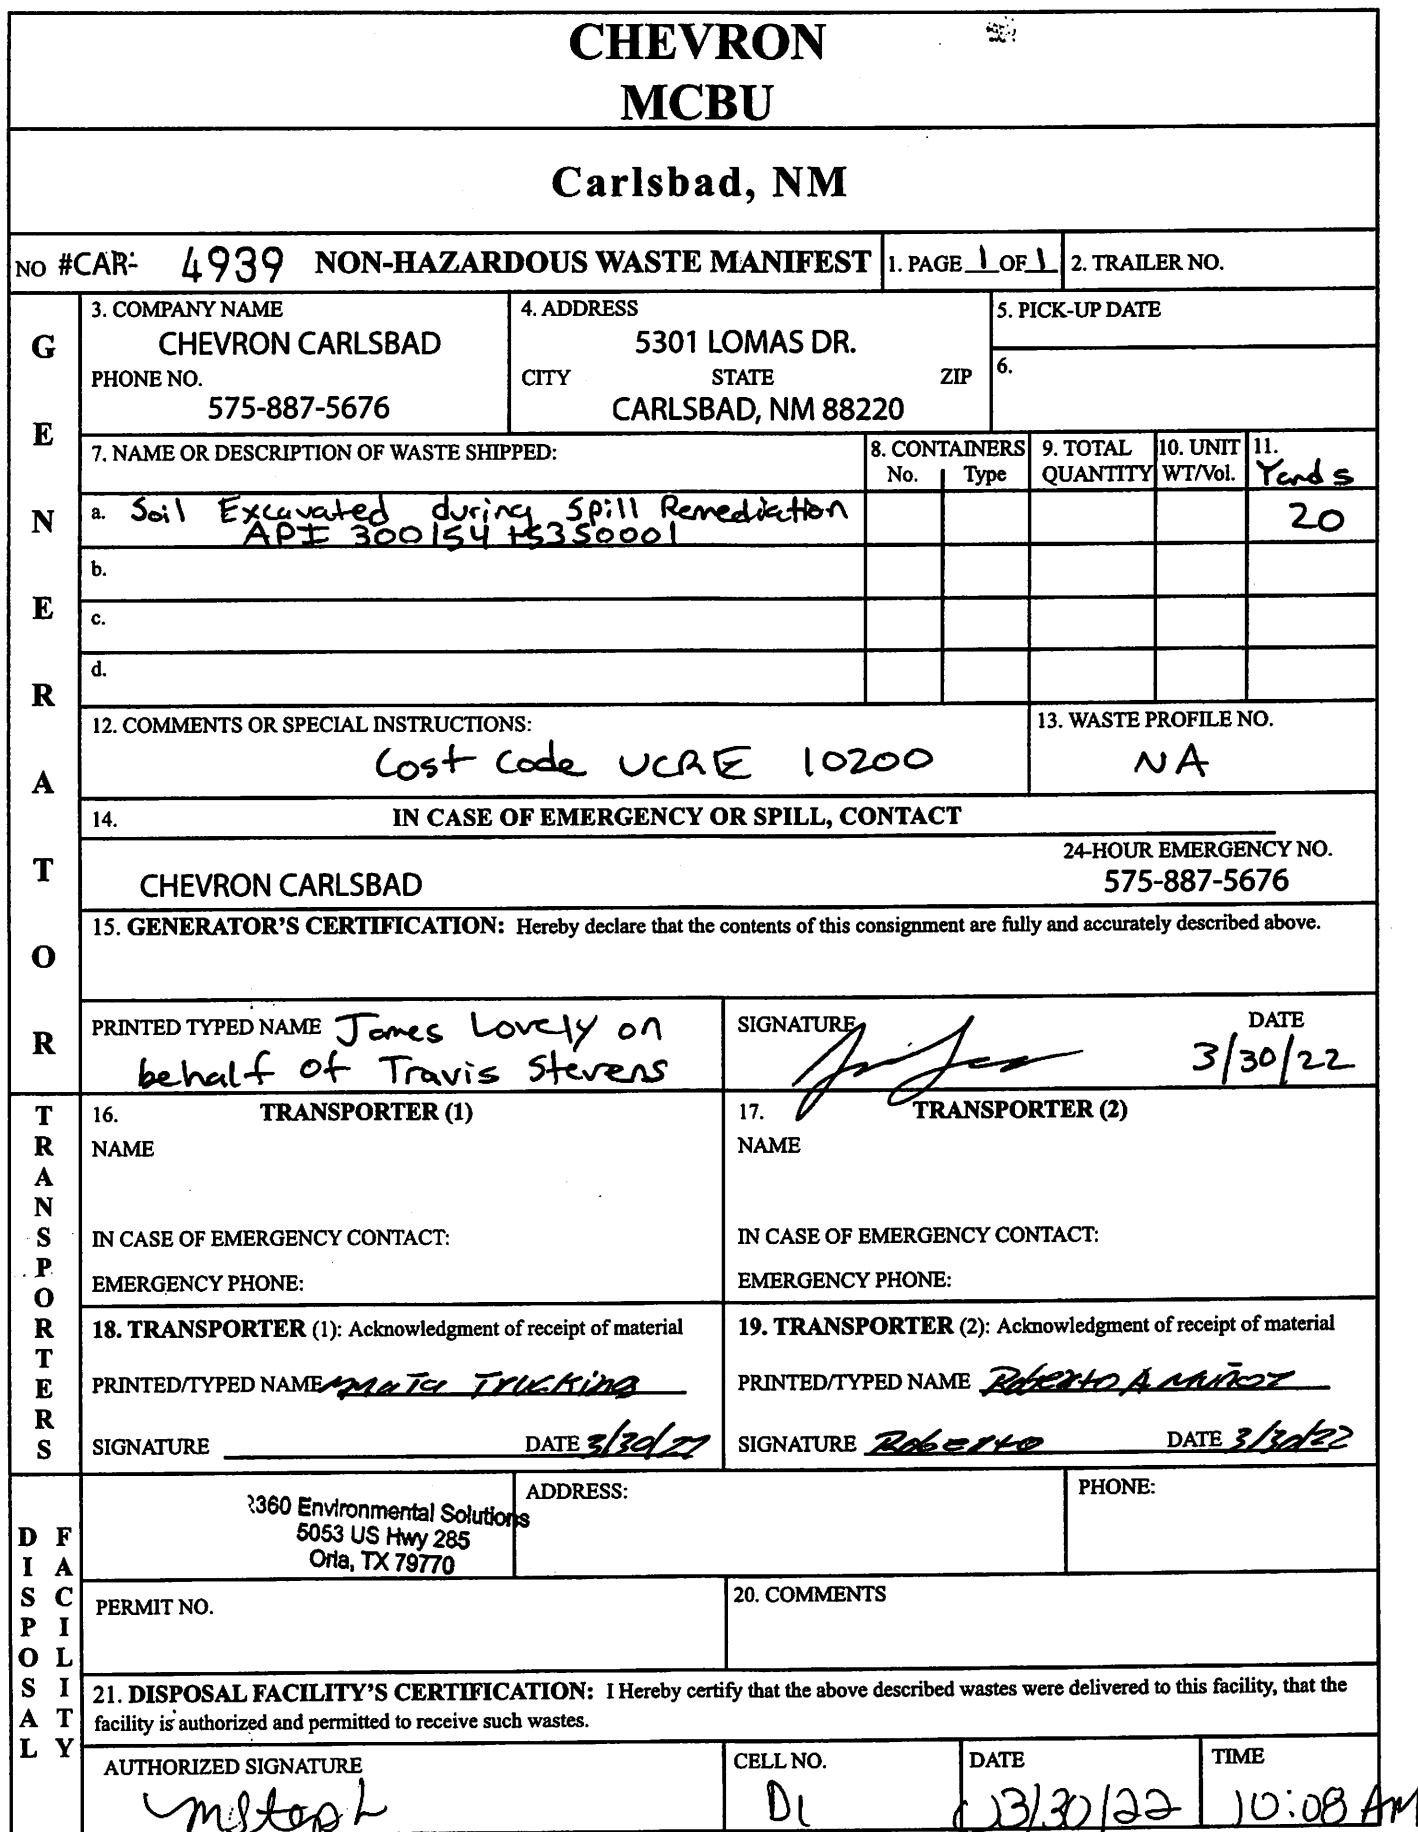 CHEVRON
MCBU
Carlsbad, NM
NO #CAR- 4939 NON-HAZARDOUS WASTE MANIFEST 1. PAGE 1 OF 1 2. TRAILER NO.
GENERATOR
3. COMPANY NAME
CHEVRON CARLSBAD
PHONE NO.
575-887-5676
4. ADDRESS
5301 LOMAS DR.
CITY STATE ZIP
CARLSBAD, NM 88220
5. PICK-UP DATE
6.
7. NAME OR DESCRIPTION OF WASTE SHIPPED:
8. CONTAINERS
No. Type
9. TOTAL
QUANTITY
10. UNIT
WT/Vol.
11.
Yards
a. Soil Excavated during Spill Remediation
API 300154 5350001
20
b.
c.
d.
12. COMMENTS OR SPECIAL INSTRUCTIONS:
Cost Code UCRE 10200
13. WASTE PROFILE NO.
NA
14. IN CASE OF EMERGENCY OR SPILL, CONTACT
24-HOUR EMERGENCY NO.
CHEVRON CARLSBAD 575-887-5676
15. GENERATOR'S CERTIFICATION: Hereby declare that the contents of this consignment are fully and accurately described above.
PRINTED TYPED NAME James Lovely on
behalf of Travis Stevens
SIGNATURE
DATE
3/30/22
TRANSPORTERS
16. TRANSPORTER (1)
NAME
IN CASE OF EMERGENCY CONTACT:
EMERGENCY PHONE:
17. TRANSPORTER (2)
NAME
IN CASE OF EMERGENCY CONTACT:
EMERGENCY PHONE:
18. TRANSPORTER (1): Acknowledgment of receipt of material
PRINTED/TYPED NAME Mata Trucking
SIGNATURE DATE 3/30/22
19. TRANSPORTER (2): Acknowledgment of receipt of material
PRINTED/TYPED NAME Roberto A Muñoz
SIGNATURE Roberto DATE 3/30/22
DISPOSAL FACILITY
R360 Environmental Solutions
5053 US Hwy 285
Orla, TX 79770
ADDRESS:
PHONE:
PERMIT NO.
20. COMMENTS
21. DISPOSAL FACILITY'S CERTIFICATION: I Hereby certify that the above described wastes were delivered to this facility, that the
facility is authorized and permitted to receive such wastes.
AUTHORIZED SIGNATURE
CELL NO.
D1
DATE
3/30/22
TIME
10:08 AM